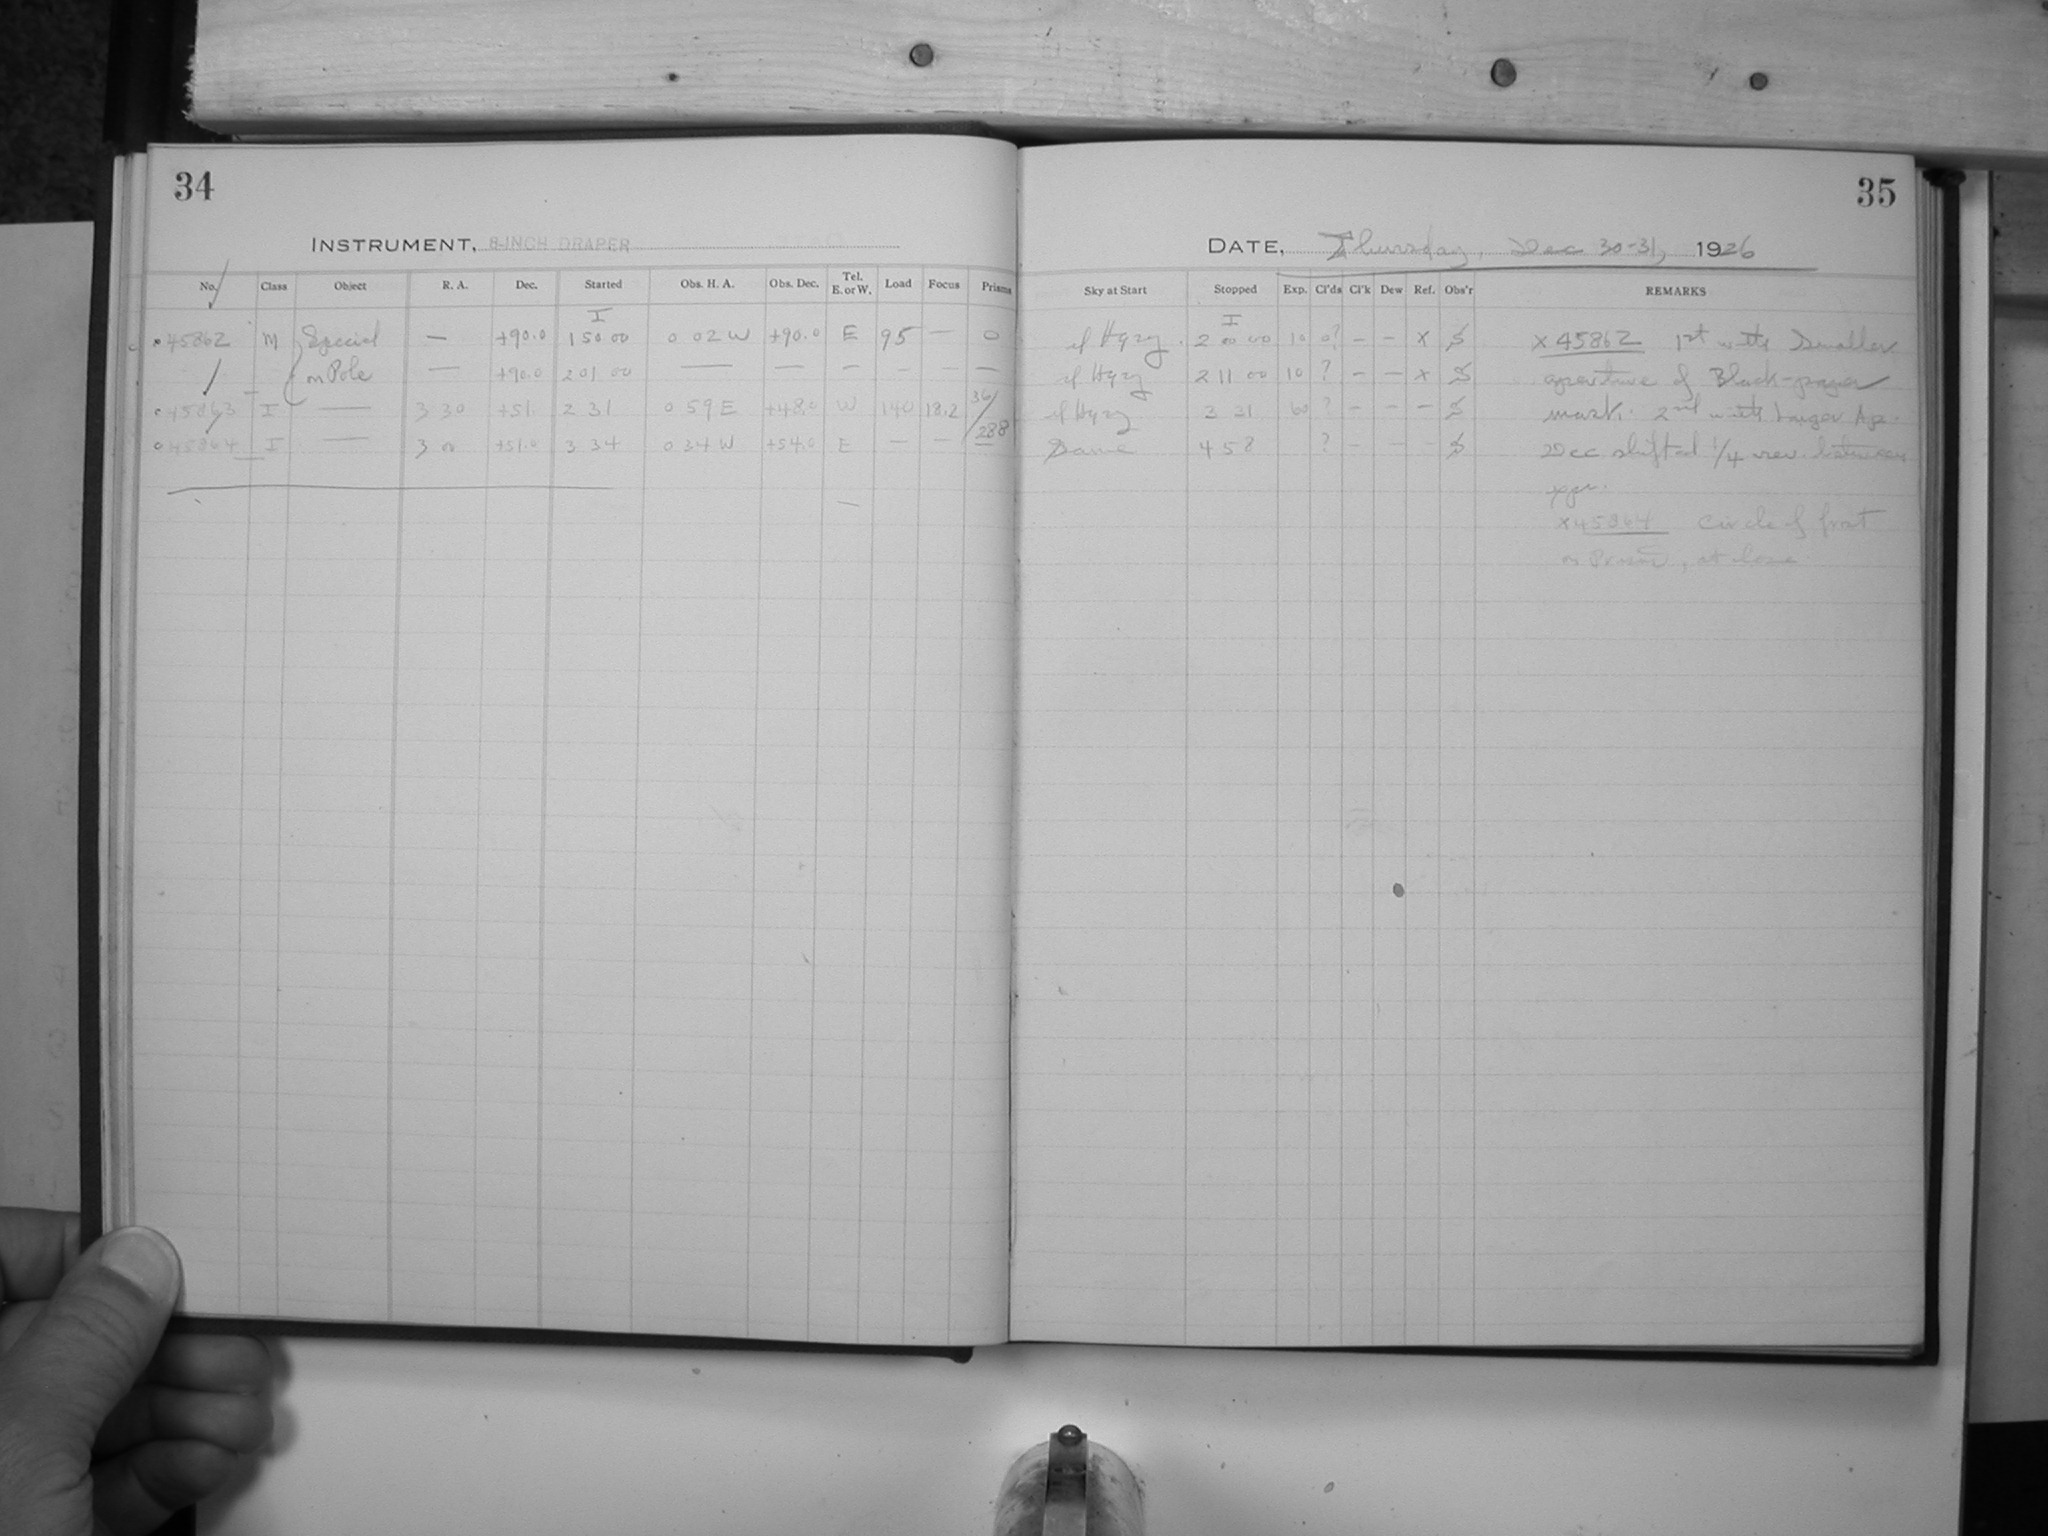 34
INSTRUMENT, 8-INCH DRAPER
No. Class Object R. A. Dec. Started Obs. H. A. Obs. Dec. Tel. E. or W. Load Focus Prisms
I
45862 M Special — +90.0 1 50 00 0 02 W +90.0 E 95 — 0
on Pole — +90.0 2 01 00 — — — - - —
45863 I — 3 30 +51. 2 31 0 59 E +48.0 W 140 18.2 36/288
45864 I — 3 00 +51.0 3 34 0 34 W +54.0 E — —
35
DATE, Thursday, Dec 30-31, 1926
Sky at Start Stopped Exp. Cl'ds Cl'k Dew Ref. Obs'r REMARKS
I
Hazy 2 00 00 10 0? - - x x 45862 1st with Smaller
Hazy 2 11 00 10 ? - - x aperture of Black-paper
Hazy 3 31 60 ? - - - mask. 2nd with larger Ap.
Same 4 58 ? - - - Dec shifted 1/4 rev. between
x45864 Circle of frost
on Prism, at close